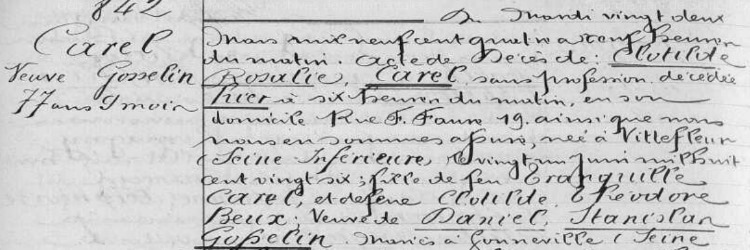 842
Carel
Veuve Gosselin
77 ans 9 mois
Du Mardi vingt deux
Mars mil neuf cent quatre à neuf heures
du matin. Acte de Décès de: Clotilde
Rosalie, Carel, sans profession décédée
hier à six heures du matin, en son
domicile Rue F. Faure 19. ainsi que nous
nous en sommes assuré, née à Villefleur
(Seine Inférieure, le vingt un Juin mil huit
cent vingt six; fille de feu Tranquille
Carel, et de feue Clotilde, Théodore
Beux; Veuve de Daniel, Stanislas
Gosselin. Mariés à Gonneville (Seine